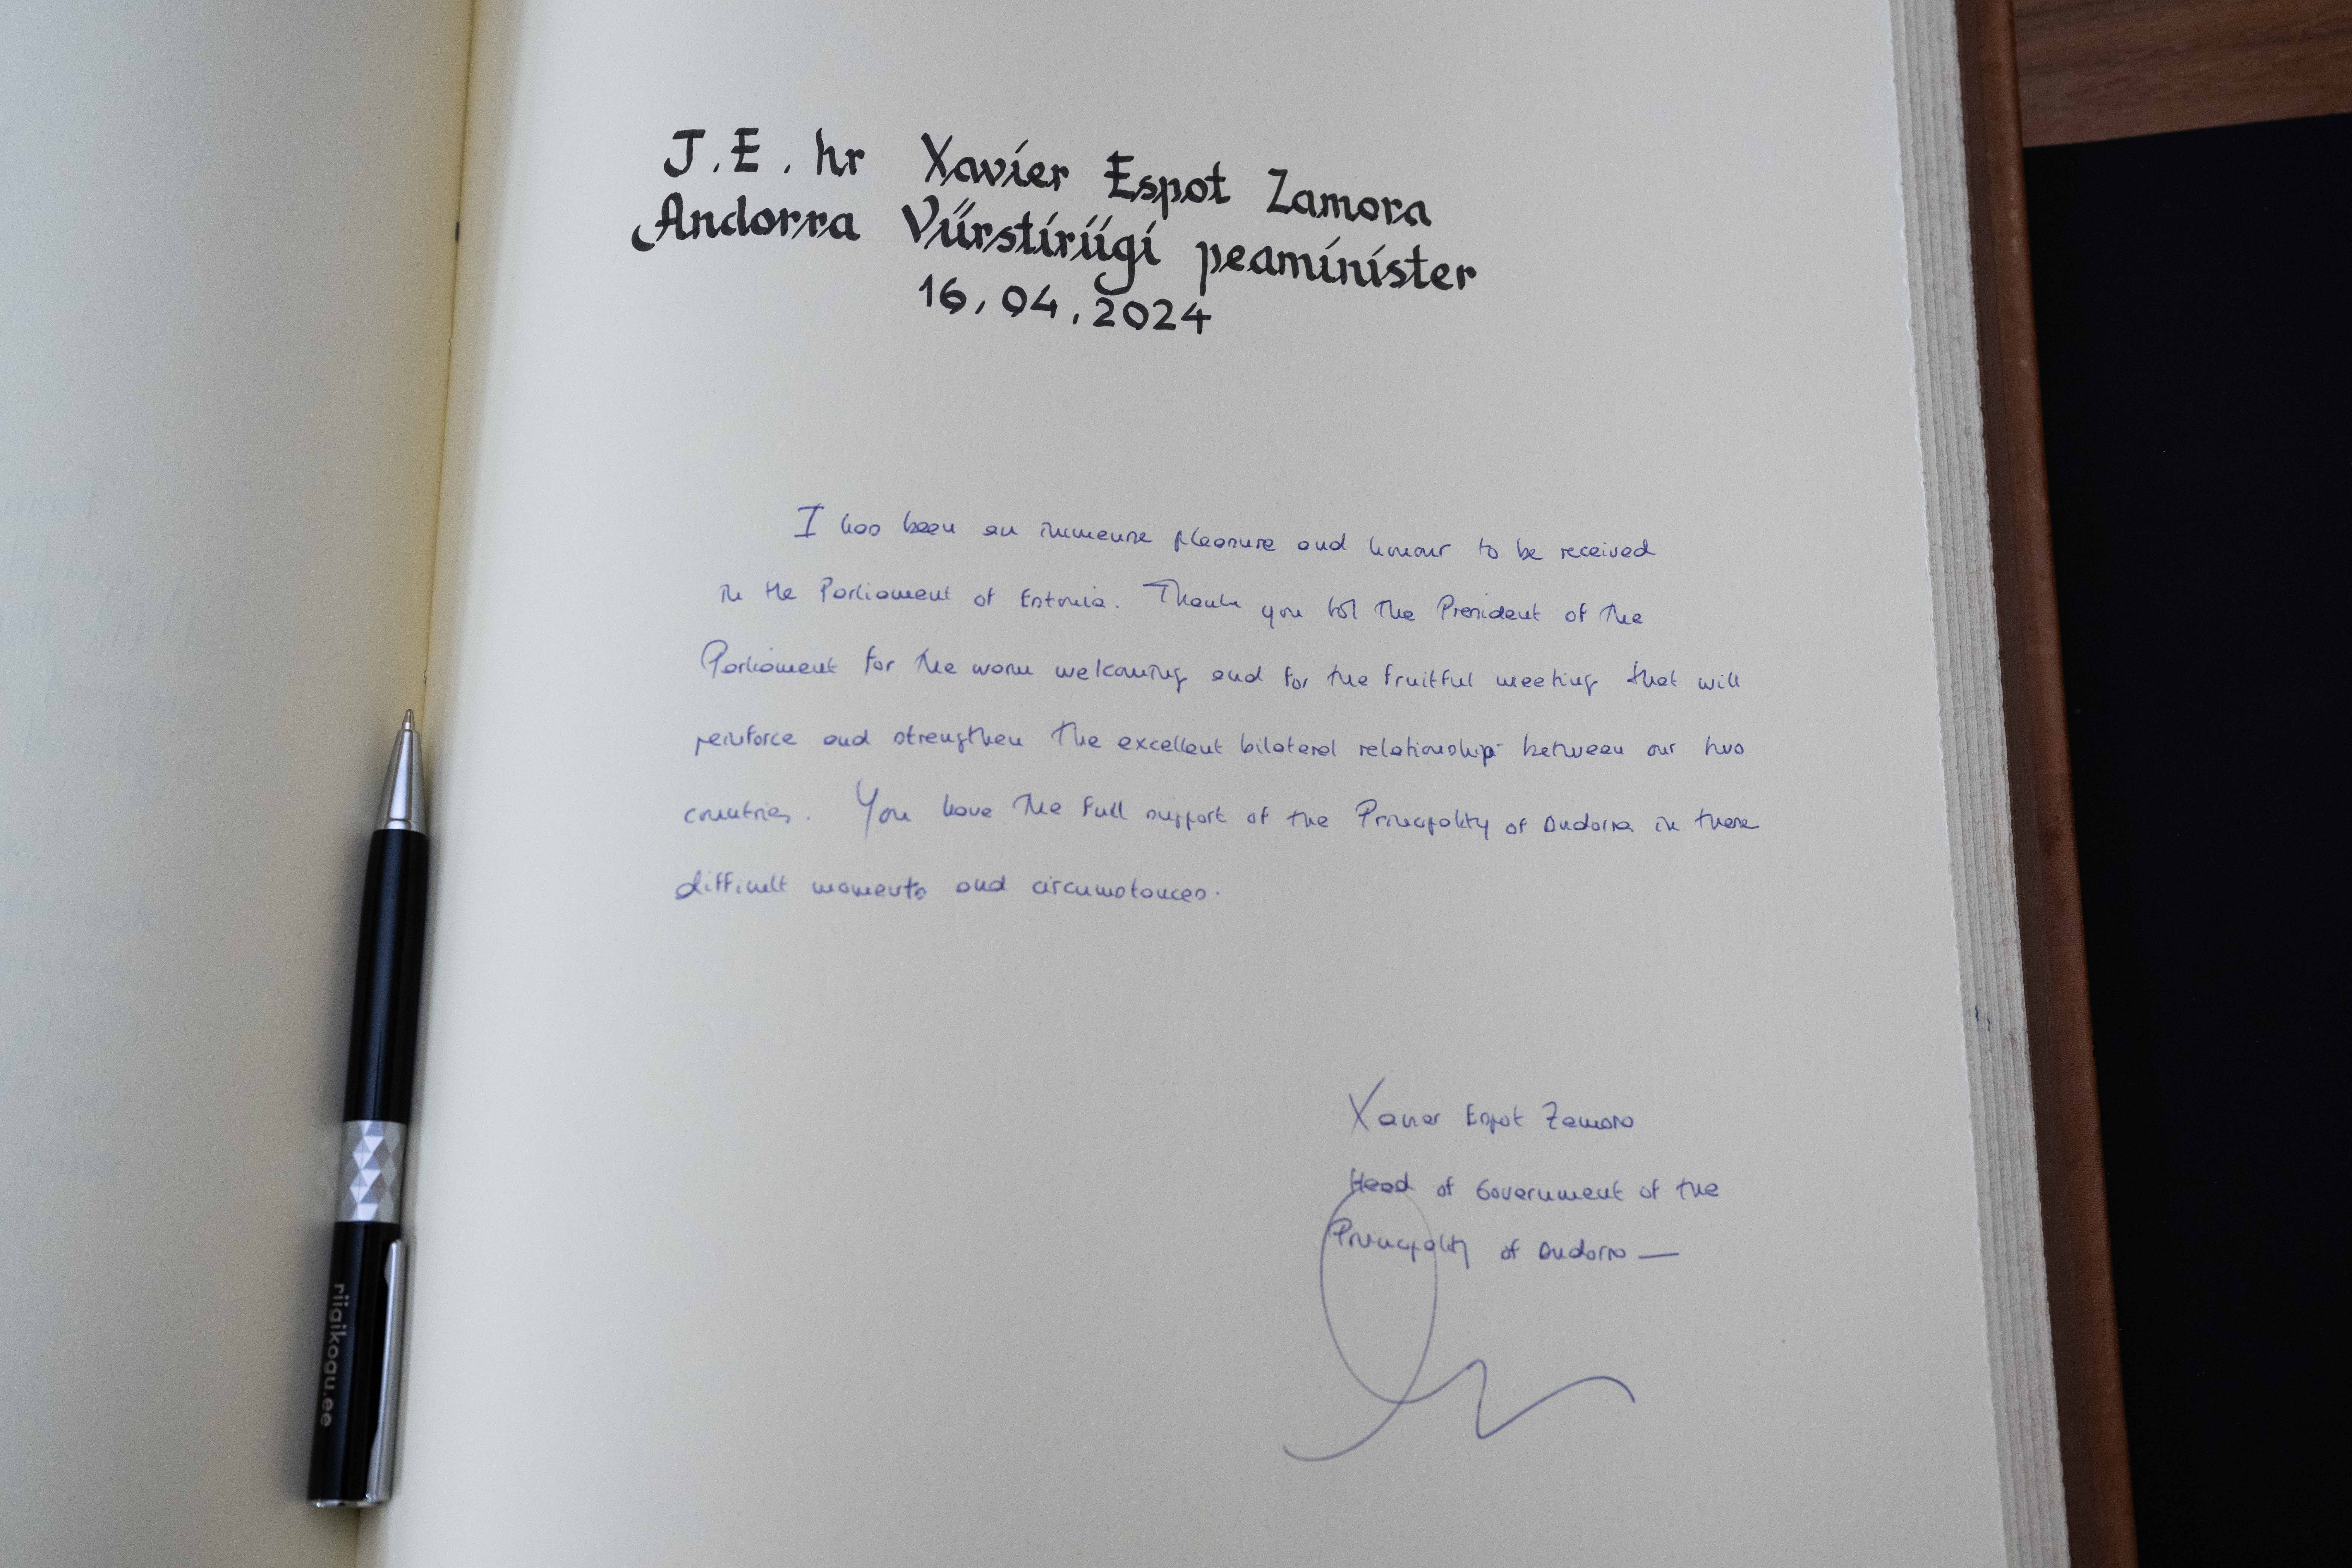 J.E. hr Xavier Espot Zamora
Andorra Vürstiriigi peaminister
16.04.2024
I has been an immense pleasure and honour to be received
in the Parliament of Estonia. Thank you to the President of the
Parliament for the warm welcoming and for the fruitful meeting that will
reinforce and strengthen the excellent bilateral relationship between our two
countries. You have the full support of the Principality of Andorra in these
difficult moments and circumstances.
Xavier Espot Zamora
Head of Government of the
Principality of Andorra —
riigikogu.ee